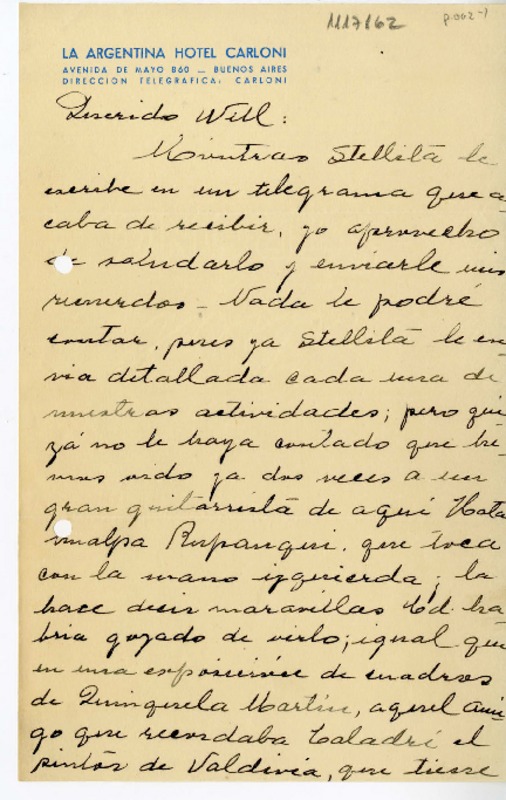 1117/62
p.002-1
LA ARGENTINA HOTEL CARLONI
AVENIDA DE MAYO 860 — BUENOS AIRES
DIRECCION TELEGRAFICA: CARLONI
Querido Will:
Mientras Stellita le
escribe en un telegrama que a-
caba de recibir, yo aprovecho
de saludarlo y enviarle mis
recuerdos — Nada le podré
contar, pues ya Stellita le en
via detallada cada una de
nuestras actividades; pero qui
zá no le haya contado que he-
mos oido ya dos veces a un
gran guitarrista de aqui Hata
mualpa Rupanqui, que toca
con la mano izquierda; la
hace decir maravillas Ud. ha
bria gozado de verlo; igual que
en una exposición de cuadros
de Quinquela Martin, aquel ami
go que recordaba Caladri el
pintor de Valdivia, que tiene